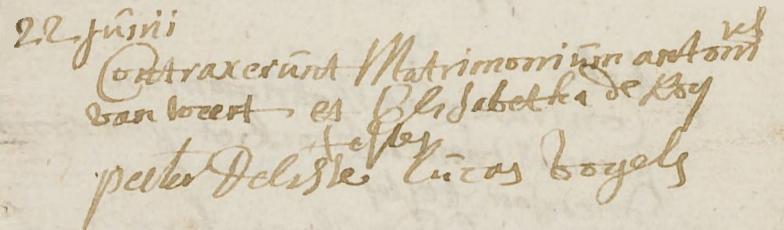 22 Junii
Contraxerunt Matrimonium antoni us
van weert et Elisabetha de Roy
testes
peeter Lucas Vogels